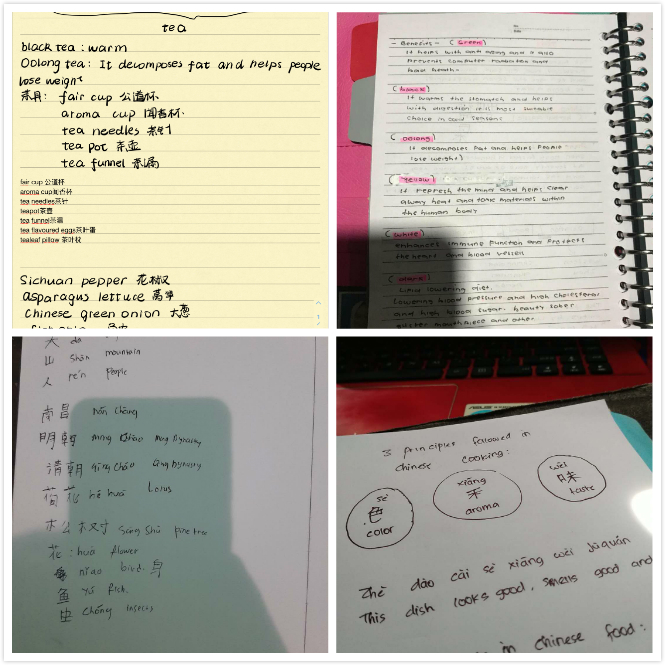 tea
black tea : warm
Oolong tea: It decomposes fat and helps people
lose weight
茶具: fair cup 公道杯
aroma cup 闻香杯
tea needles 茶针
tea pot 茶壶
tea funnel 茶漏
fair cup 公道杯
aroma cup闻香杯
tea needles茶针
teapot茶壶
tea funnel茶漏
tea flavoured eggs茶叶蛋
tealeaf pillow 茶叶枕
Sichuan pepper 花椒
asparagus lettuce 莴笋
Chinese green onion 大葱
- Benefits - ( Green )
It helps with anti aging and it also
prevents computer radiation and
( )
It warms the stomatch and helps
with digestion is most suitable
choice in cold seasons
( oolong )
It decomposes fat and helps people
lose weight)
( Yellow )
It refresh the mind and helps clear
away heat and toxic materials within
the human body
( white )
enhances immune function and protects
the heart and blood vessels
Lipid lowering diet,
Lowering blood pressure and high cholesterol
and high blood sugar, beauty
and other
山 shān mountain
人 rén people
南昌 nán chāng
明朝 ming chao ming dynasty
清朝 qing chao qing dynasty
荷花 hé huā Lotus
song shù pine tree
花 : huā flower
niǎo bird. 鸟
鱼 yú fish.
虫 chóng insects
ASUS
3 principles followed in
chinese cooking:
sè xiāng wèi
色 香 味
color aroma taste
Zhè dào cài sè xiāng wèi jùquán
This dish looks good, smells good and
in chinese food: